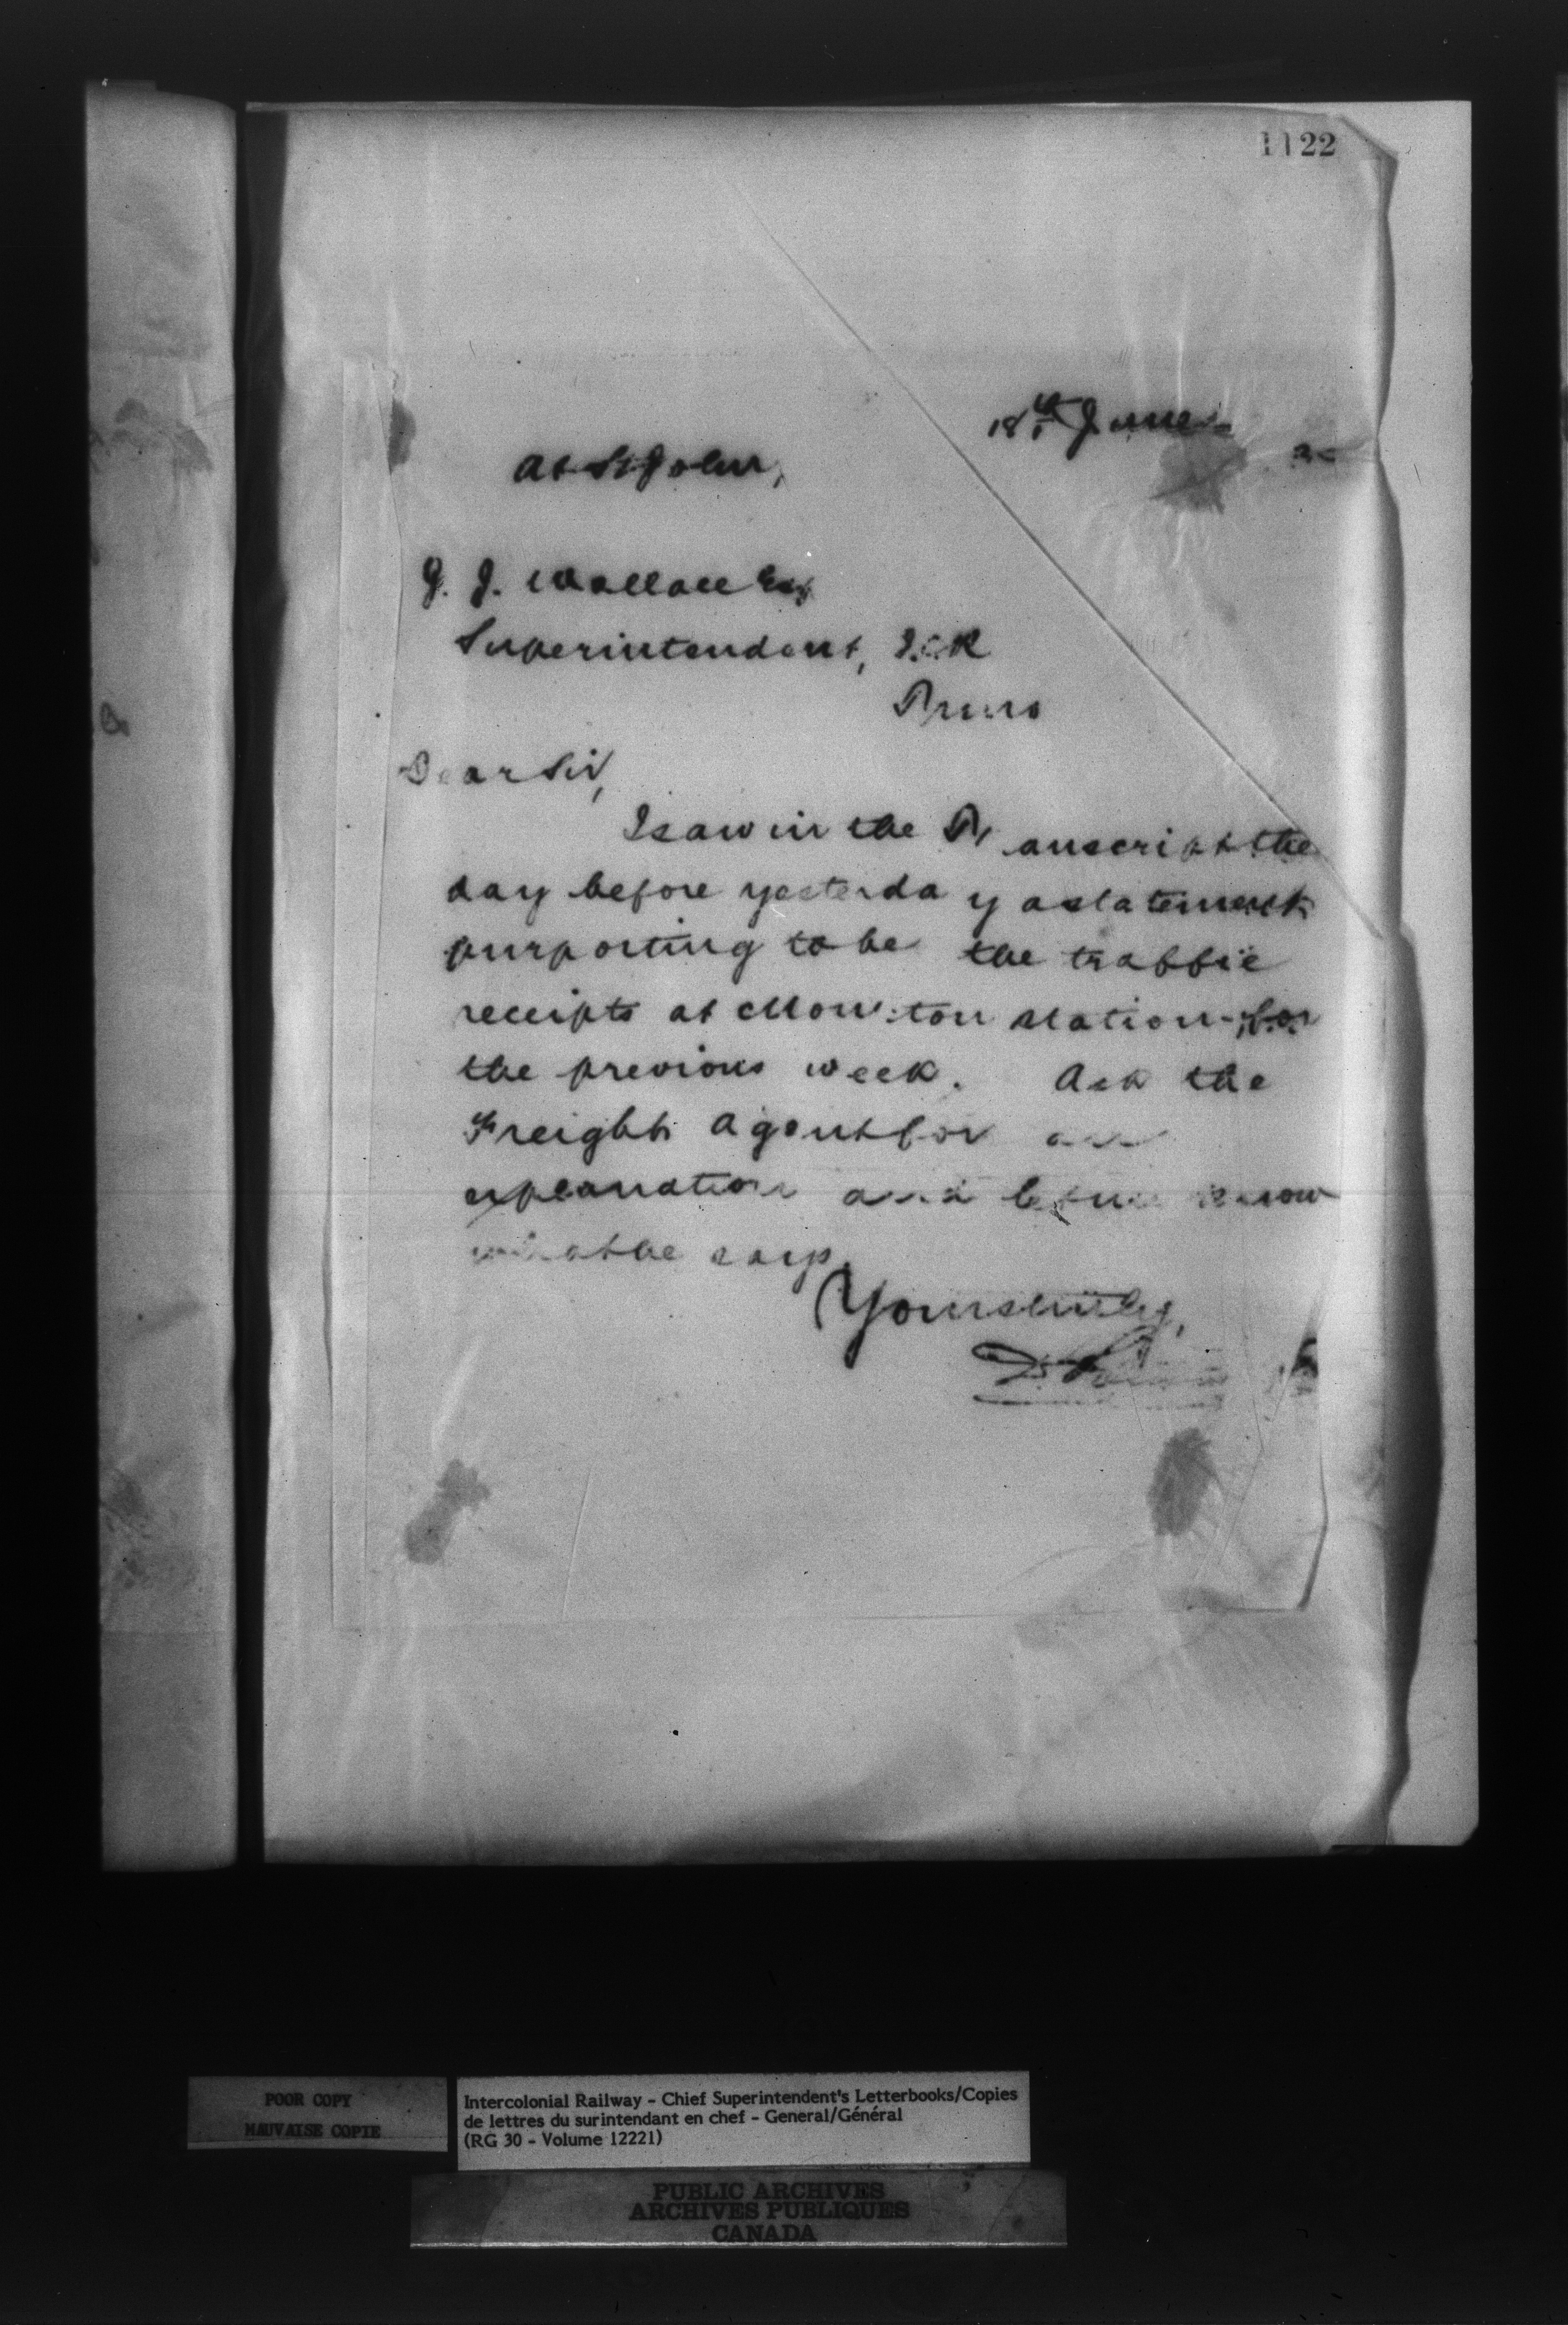 1122
18th June
At St John,
J. J. Wallace Esq
Superintendent, I.C.R
Truro
Dear Sir,
I saw in the Transcript the
day before yesterday a statement
purporting to be the traffic
receipts at Moncton station for
the previous week. Ask the
Freight Agent for an
explanation and let me know
what he says.
Yours truly,
POOR COPY
MAUVAISE COPIE
Intercolonial Railway - Chief Superintendent's Letterbooks/Copies
de lettres du surintendant en chef - General/Général
(RG 30 - Volume 12221)
PUBLIC ARCHIVES
ARCHIVES PUBLIQUES
CANADA